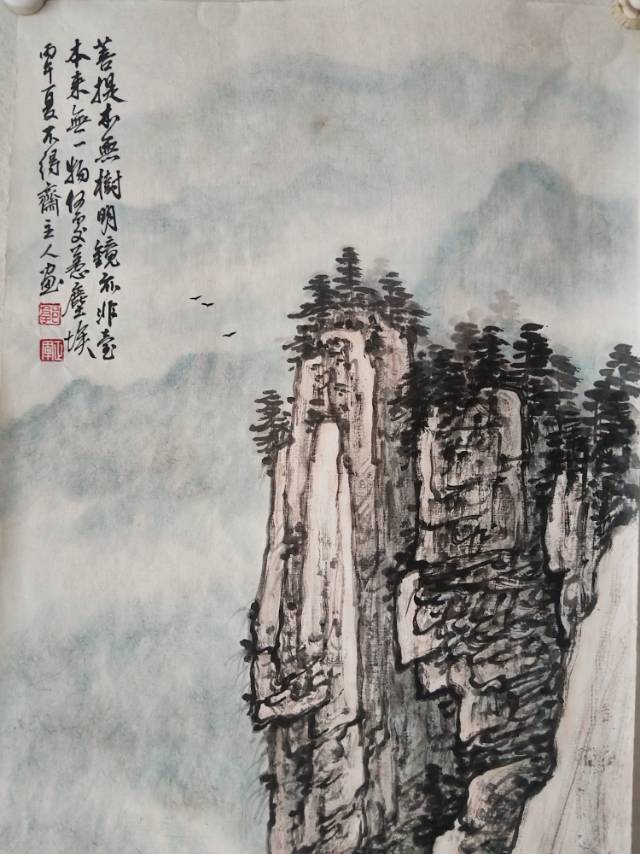 菩提本無樹明鏡亦非臺
本来無一物何處惹塵埃
丙午夏不得齋主人画